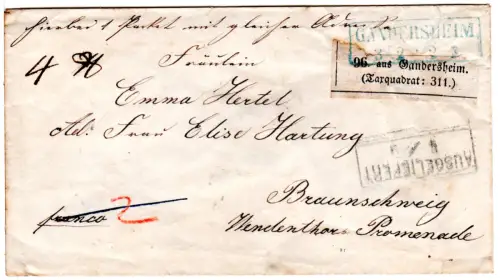 hierbei 1 Packet mit gleicher Adresse
GANDERSHEIM
96. aus Gandersheim.
(Tarquadrat: 311.)
4
Fräulein
Emma Hertel
Ad: Frau Elise Hartung
AUSGELIEFERT
Braunschweig
franco 2
Wendenthor Promenade